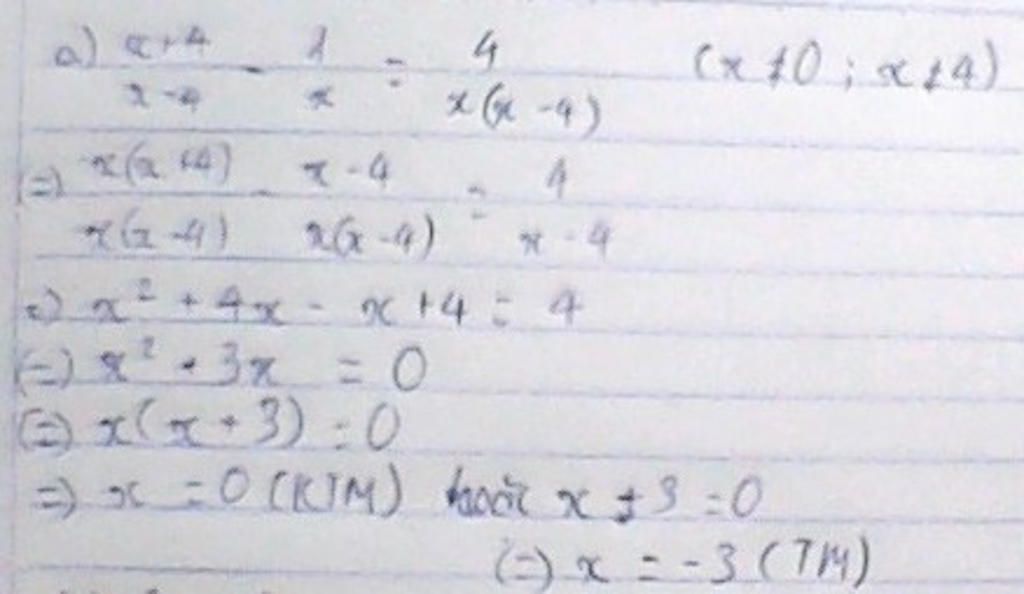 a) (x+4)/(x-4) - 1/x = 4/(x(x-4)) (x ≠ 0 ; x ≠ 4)
(=) x(x+4)/(x(x-4)) - (x-4)/(x(x-4)) = 4/(x-4)
=) x² + 4x - x + 4 = 4
(=) x² + 3x = 0
(=) x(x+3) = 0
=) x = 0 (KTM) hoặc x + 3 = 0
(=) x = -3 (TM)